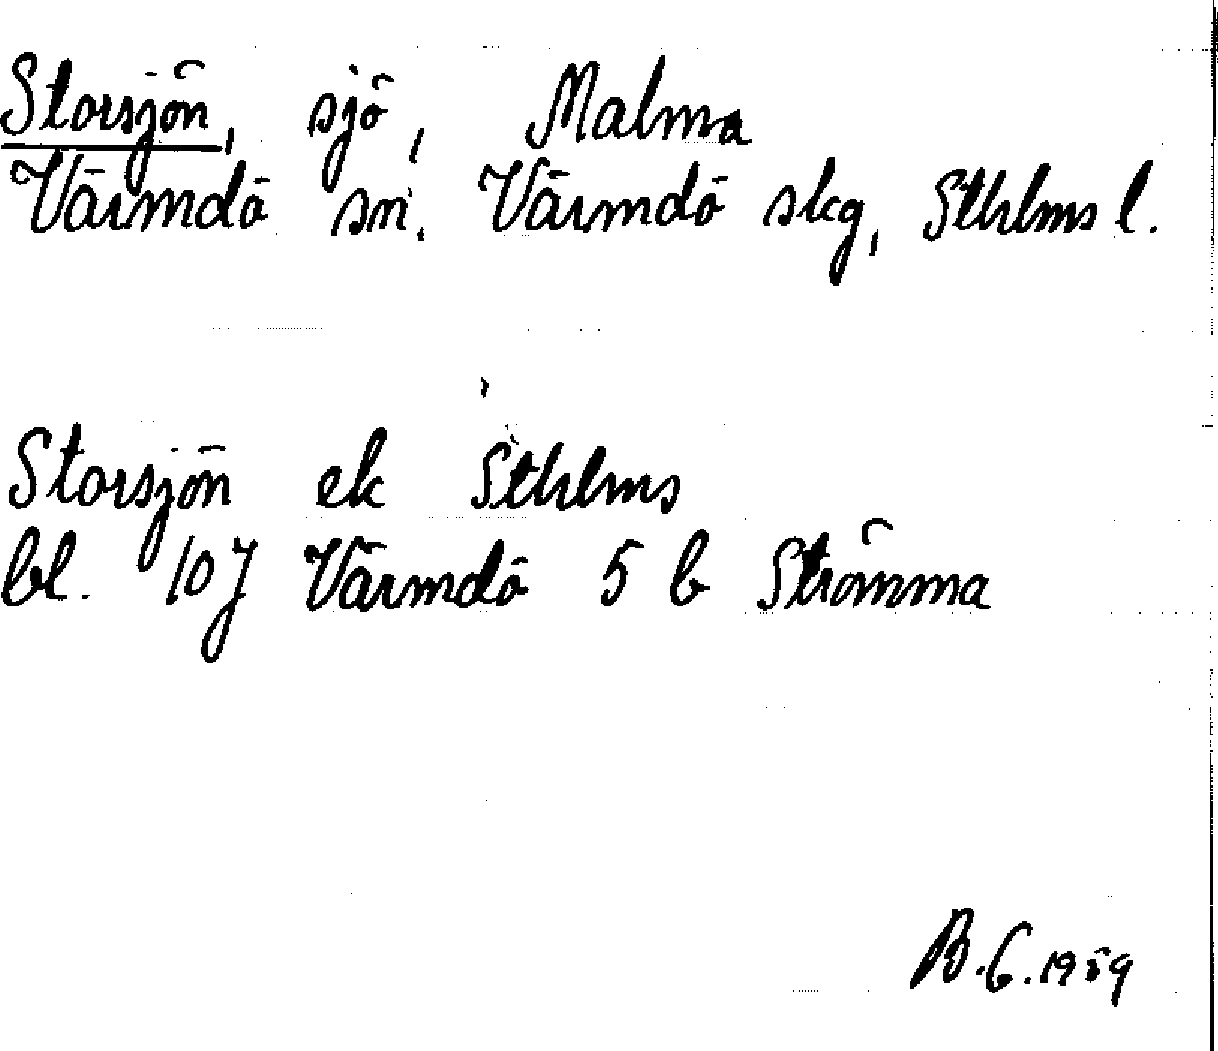 Storsjön, sjö, Malma
Värmdö sn. Värmdö skg, Sthlms l.
Storsjön ek Sthlms
bl. 10J Värmdö 5 b Strömma
B.G.1959